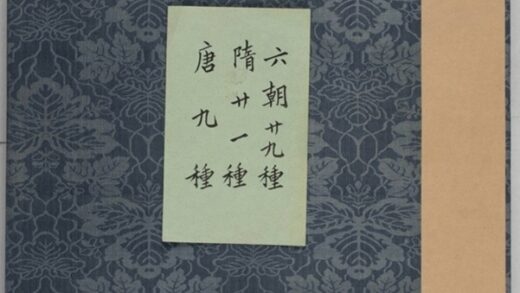 六朝廿九種
隋廿一種
唐九種